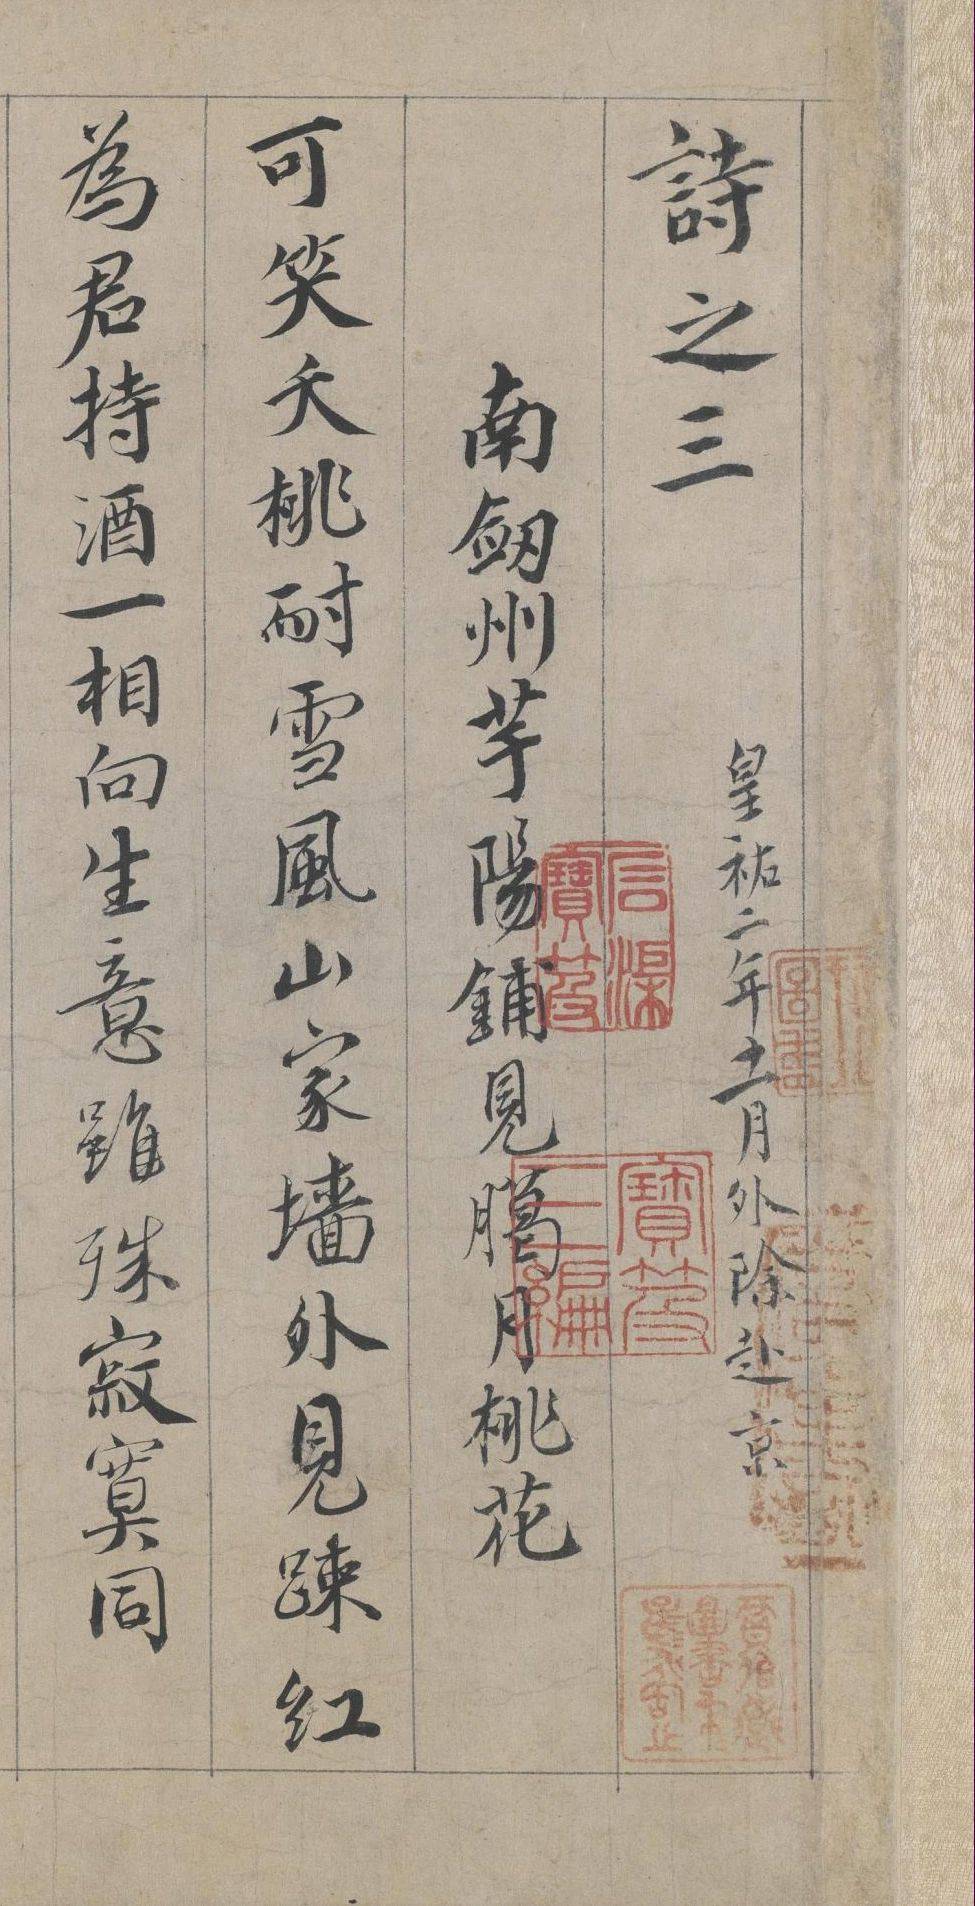 詩之三
皇祐二年十一月外除赴京
南劔州芋陽鋪見臈月桃花
可笑夭桃耐雪風山家墻外見疎紅
為君持酒一相向生意雖殊寂寞同